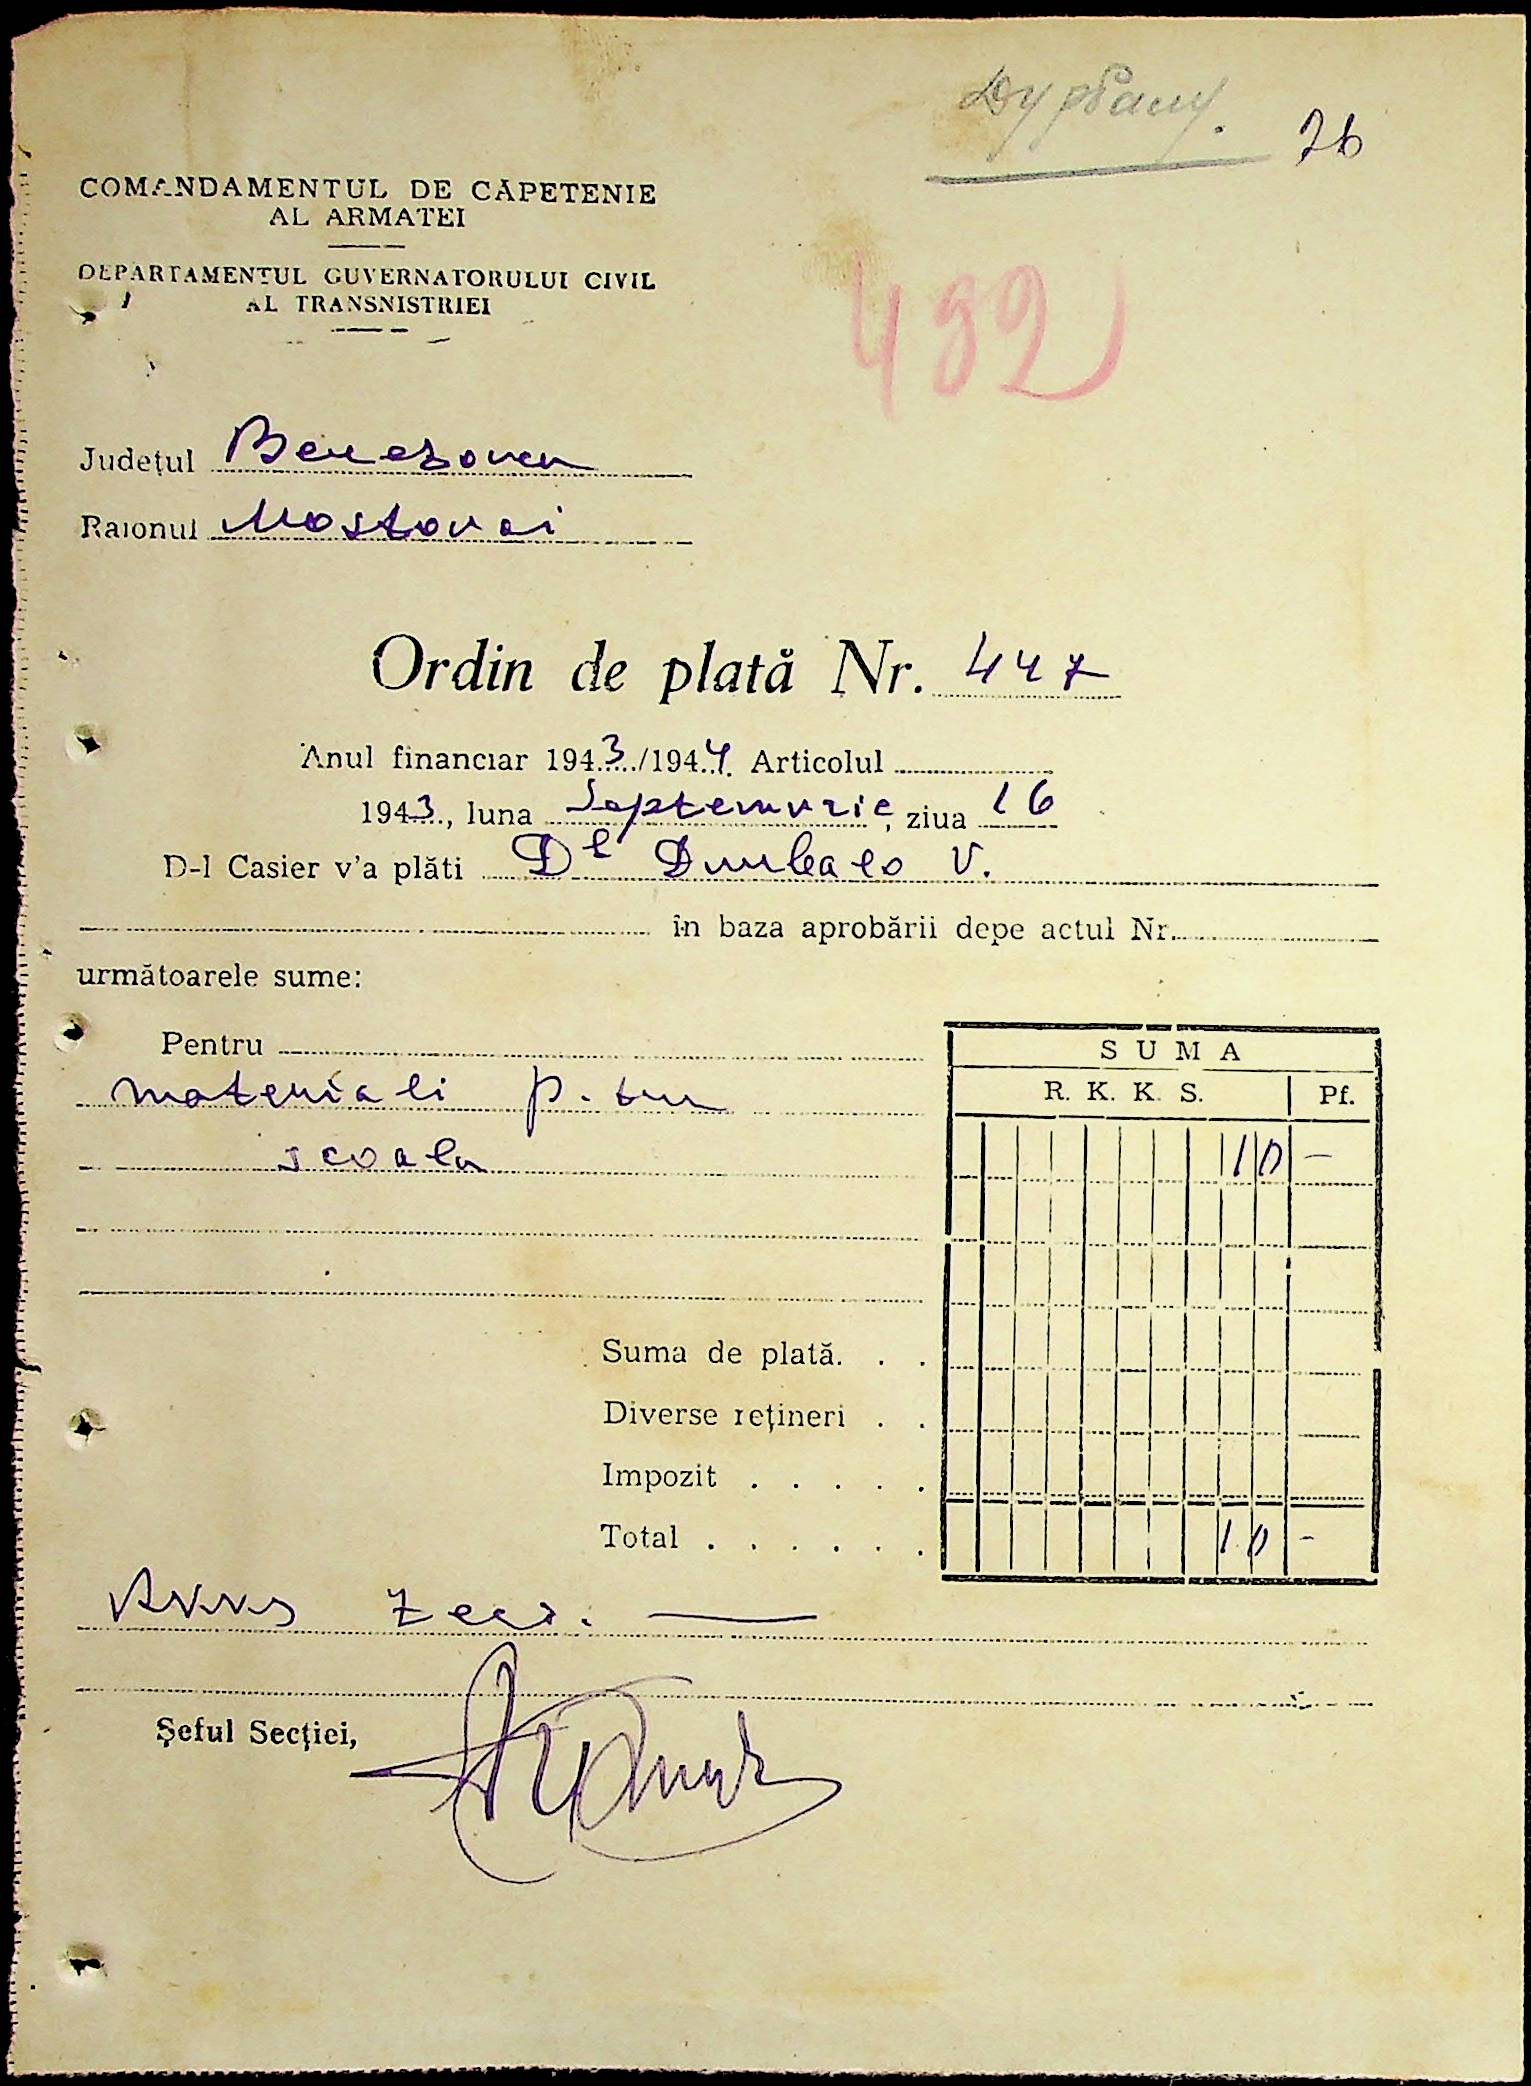 76
COMANDAMENTUL DE CĂPETENIE
AL ARMATEI
DEPARTAMENTUL GUVERNATORULUI CIVIL
AL TRANSNISTRIEI
492
Județul Berezovca
Raionul Mostovoi
Ordin de plată Nr. 447
Anul financiar 1943/1944 Articolul
1943, luna Septemvrie, ziua 16
D-l Casier v'a plăti Dl V.
în baza aprobării depe actul Nr.
următoarele sume:
Pentru
SUMA
materiali p. tru
R. K. K. S. Pf.
scoala 10 -
Suma de plată. . .
Diverse rețineri . .
Impozit . . . . .
Total . . . . . . 10 -
zece.
Șeful Secției,